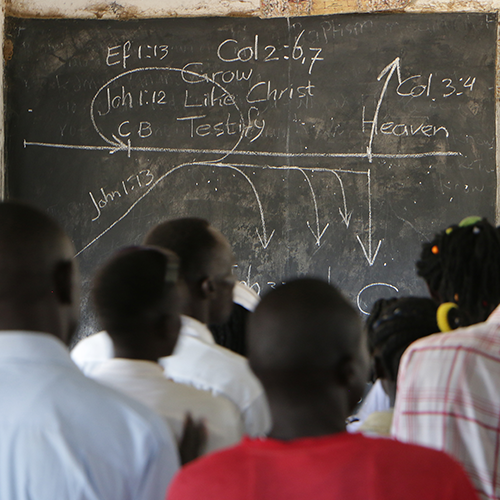 Ef 1:13
Col 2:6,7
Grow
Col 3:4
Joh 1:12
Like Christ
C B
Testify
Heaven
John 1:13
C